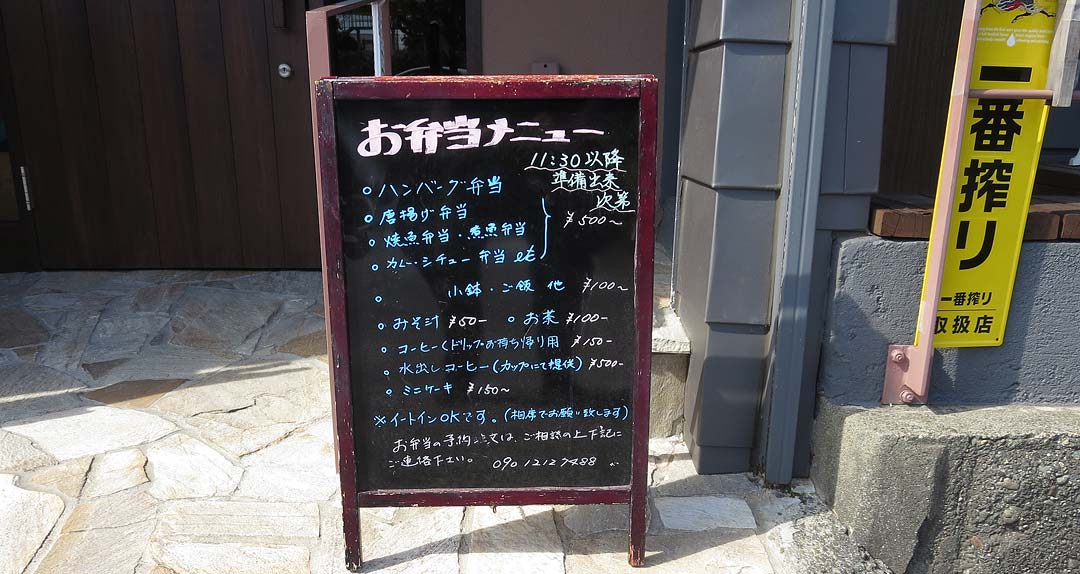 お弁当メニュー
11:30以降
準備出来
次第
○ ハンバーグ弁当
○ 唐揚げ弁当
○ 焼魚弁当・煮魚弁当
○ カレー・シチュー弁当 etc
¥500〜
○ 小鉢・ご飯 他 ¥100〜
○ みそ汁 ¥50- ○ お茶 ¥100-
○ コーヒー(ドリップお持ち帰り用 ¥150-
○ 水出しコーヒー(カップにて提供) ¥500-
○ ミニケーキ ¥150〜
※イートインOKです。(相席でお願い致します)
お弁当の予約・注文は、ご相談の上下記に
ご連絡下さい。 090 1212 7488
一番搾り
一番搾り
取扱店